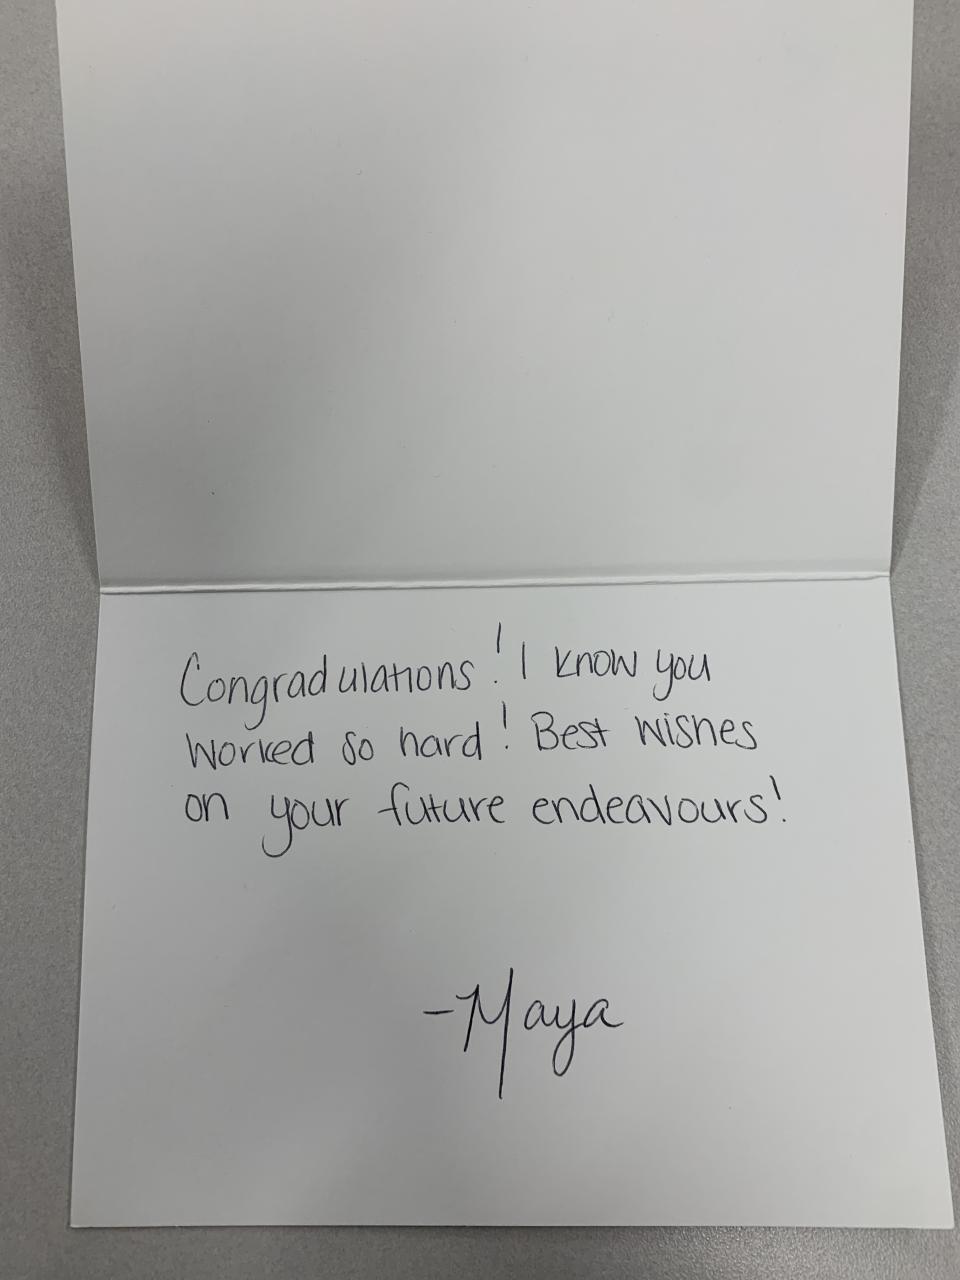 Congradulations! I know you
worked so hard! Best wishes
on your future endeavours!
-Maya